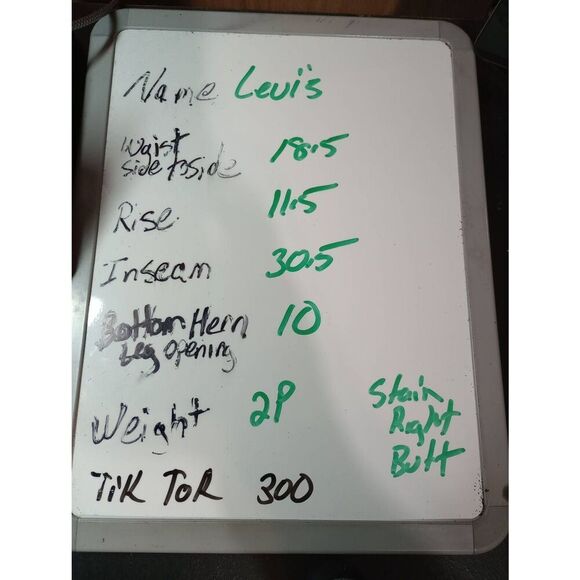 Name Levi's
Waist
side to side 18.5
Rise 11.5
Inseam 30.5
Bottom Hem 10
Leg Opening
Weight 2P
Stain
Right
Butt
TiK ToK 300